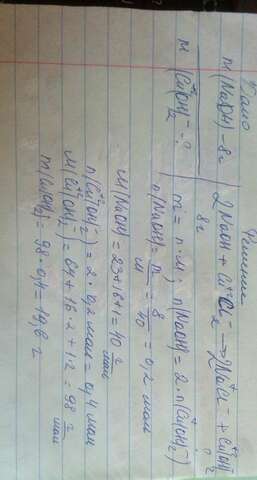 Дано Решение
m(NaOH) - 8г 2NaOH + Cu⁺²Cl₂⁻ → 2Na⁺Cl⁻ + Cu(OH)₂
8г ? г
m(Cu⁺²(OH)₂⁻ - ? m = n · M ; n(NaOH) = 2 · n(Cu(OH)₂⁻)
n(NaOH) = m/M = 8/40 = 0,2 моль
M(NaOH) = 23+16+1 = 40 г/моль
n(Cu⁺²(OH)₂⁻) = 2 · 0,2 моль = 0,4 моль
M(Cu⁺²(OH)₂⁻) = 64 + 16·2 + 1·2 = 98 г/моль
m(Cu(OH)₂) = 98 · 0,4 = 19,6 г